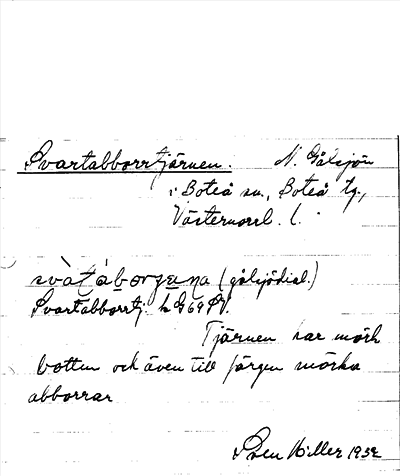 Svartabborrtjärnen. N. Gålsjön
i Boteå sn., Boteå tg.,
Västernorrl. l.
(gålsjödial.)
Svartabborrtj.
Tjärnen har mörk
botten och även till färgen mörka
abborrar
1932